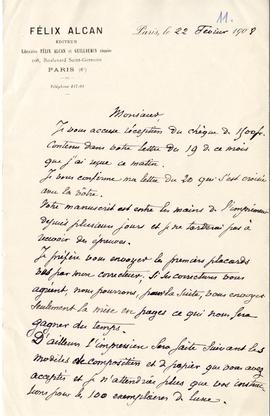 11.
FÉLIX ALCAN
ÉDITEUR
Librairies FÉLIX ALCAN et GUILLAUMIN réunies
108, Boulevard Saint-Germain
PARIS (6e)
Téléphone
Paris, le 22 Février 1908
Monsieur
Je vous accuse réception du chèque de
Contenu dans votre lettre du 19 de ce mois
que j'ai reçue ce matin.
Je vous confirme ma lettre du 20 qui s'est croisée
avec la vôtre.
Votre manuscrit est entre les mains de l'imprimeur
depuis plusieurs jours et je ne tarderai pas à
recevoir des épreuves.
Je préfère vous envoyer les premiers placards
vus par mon correcteur; si ses corrections vous
agréent, nous pourrons, pour la suite, vous envoyer
seulement la mise en pages ce qui nous fera
gagner du temps.
D'ailleurs l'impression sera faite suivant les
modèles de composition et de papier que vous avez
acceptés et je n'attendrai plus que vos instruc
tions pour le 100 exemplaires de luxe.